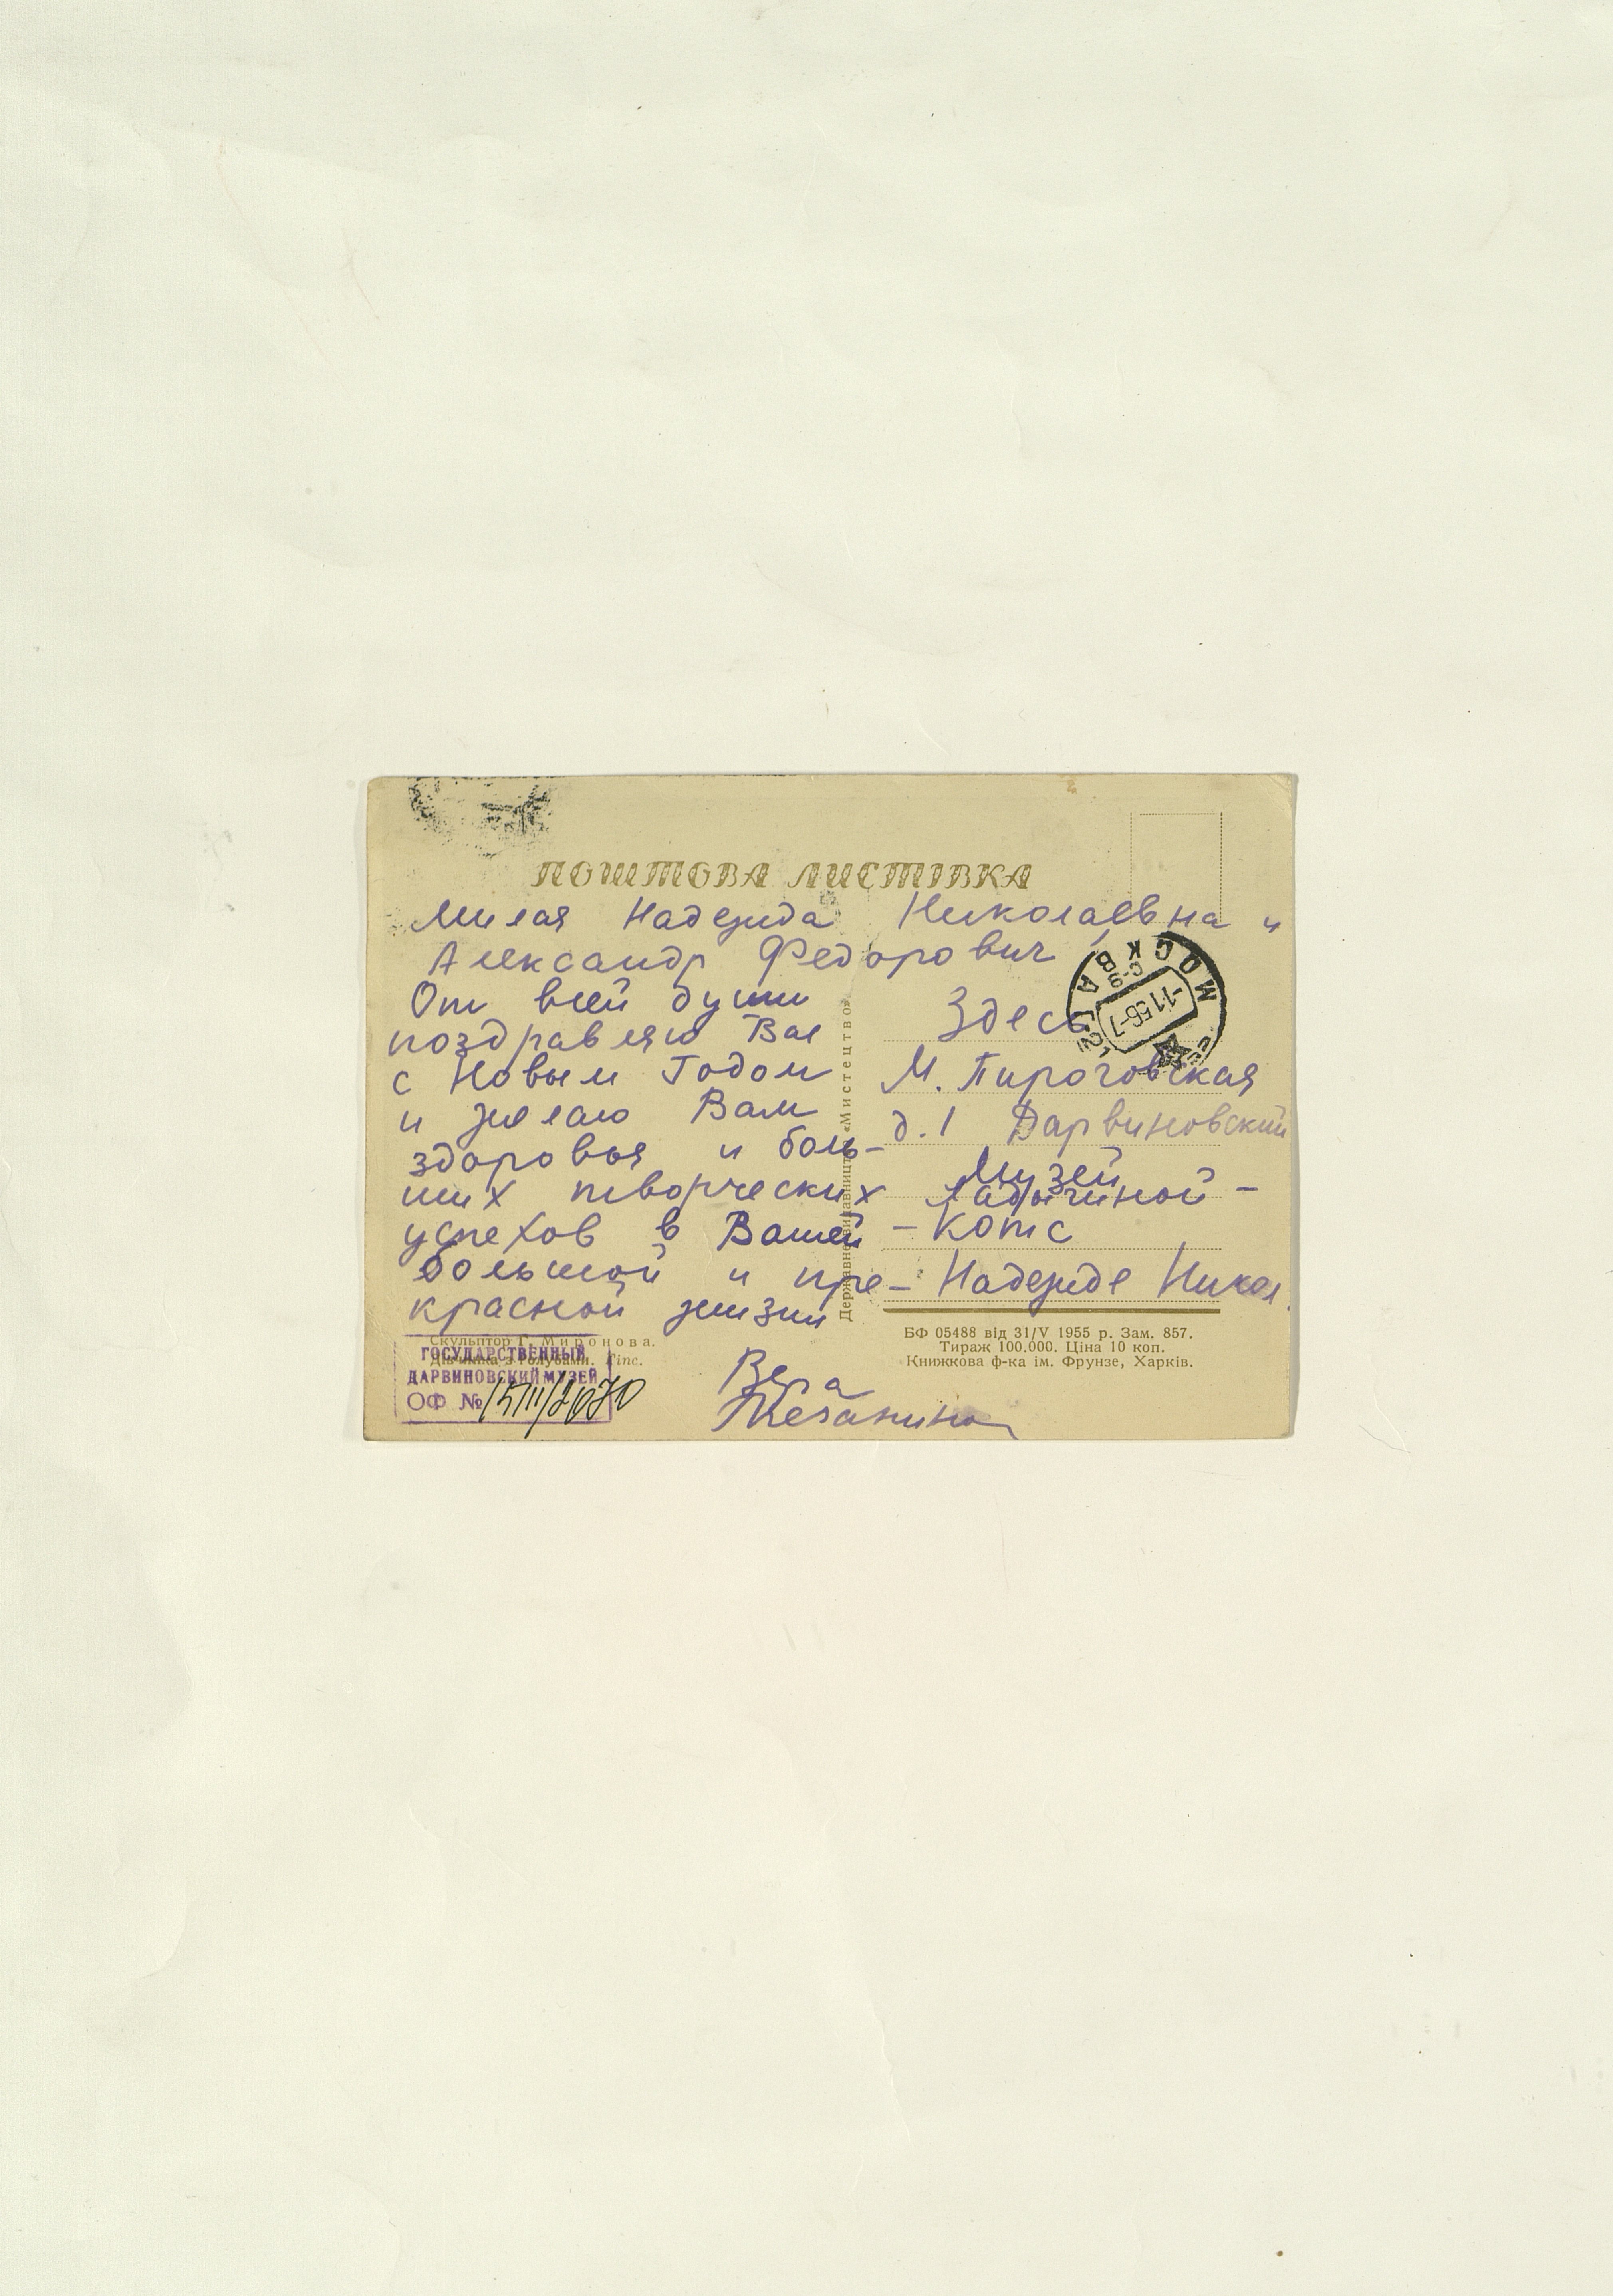 ПОШТОВА ЛИСТІВКА
Милая Надежда Николаевна и
Александр Федорович,
От всей души
поздравляю Вас
с Новым Годом
и желаю Вам
здоровья и боль-
ших творческих
успехов в Вашей
большой и пре-
красной жизни
Вера
Державне видавництво «Мистецтво»
МОСКВА
С-9
-1156-7
Здесь
М. Пироговская
д. 1 Дарвиновский
Музей
Ладыгиной -
- Котс
Надежде Никол.
Скульптор Г. Миронова.
Дівчинка з голубами. Гіпс.
ГОСУДАРСТВЕННЫЙ
ДАРВИНОВСКИЙ МУЗЕЙ
ОФ №
БФ 05488 від 31/V 1955 р. Зам. 857.
Тираж 100.000. Ціна 10 коп.
Книжкова ф-ка ім. Фрунзе, Харків.